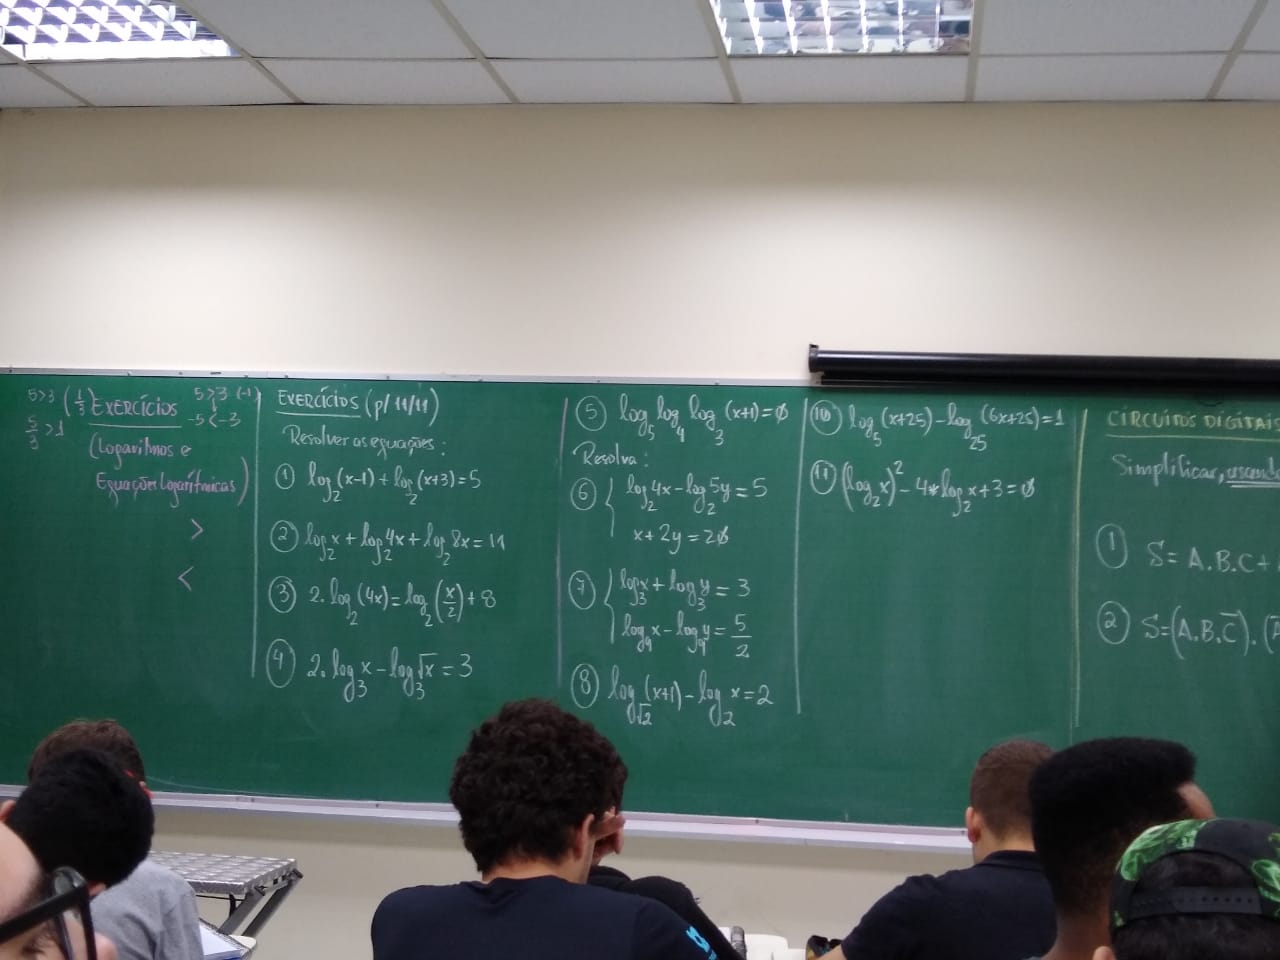 5>3 (1/3) EXERCÍCIOS 5>3 (-1)
5/3 > 1
-5 < -3
(Logaritmos e
Equações Logarítmicas)
>
<
EXERCÍCIOS (p/ 11/11)
Resolver as equações:
① log₂(x-1) + log₂(x+3) = 5
② log₂x + log₂4x + log₂8x = 11
③ 2.log₂(4x) = log₂(x/2) + 8
④ 2.log₃x - log₃√x = 3
⑤ log₅ log₄ log₃ (x+1) = 0
Resolva:
⑥ { log₂4x - log₂5y = 5
x + 2y = 20
⑦ { log₃x + log₃y = 3
log₉x - log₉y = 5/2
⑧ log√2 (x+1) - log₂x = 2
⑩ log₅(x+25) - log₂₅(6x+25) = 1
⑪ (log₂x)² - 4*log₂x + 3 = 0
CIRCUITOS DIGITAIS
Simplificar, usando
① S = A.B.C +
② S = (A.B.C̅).(